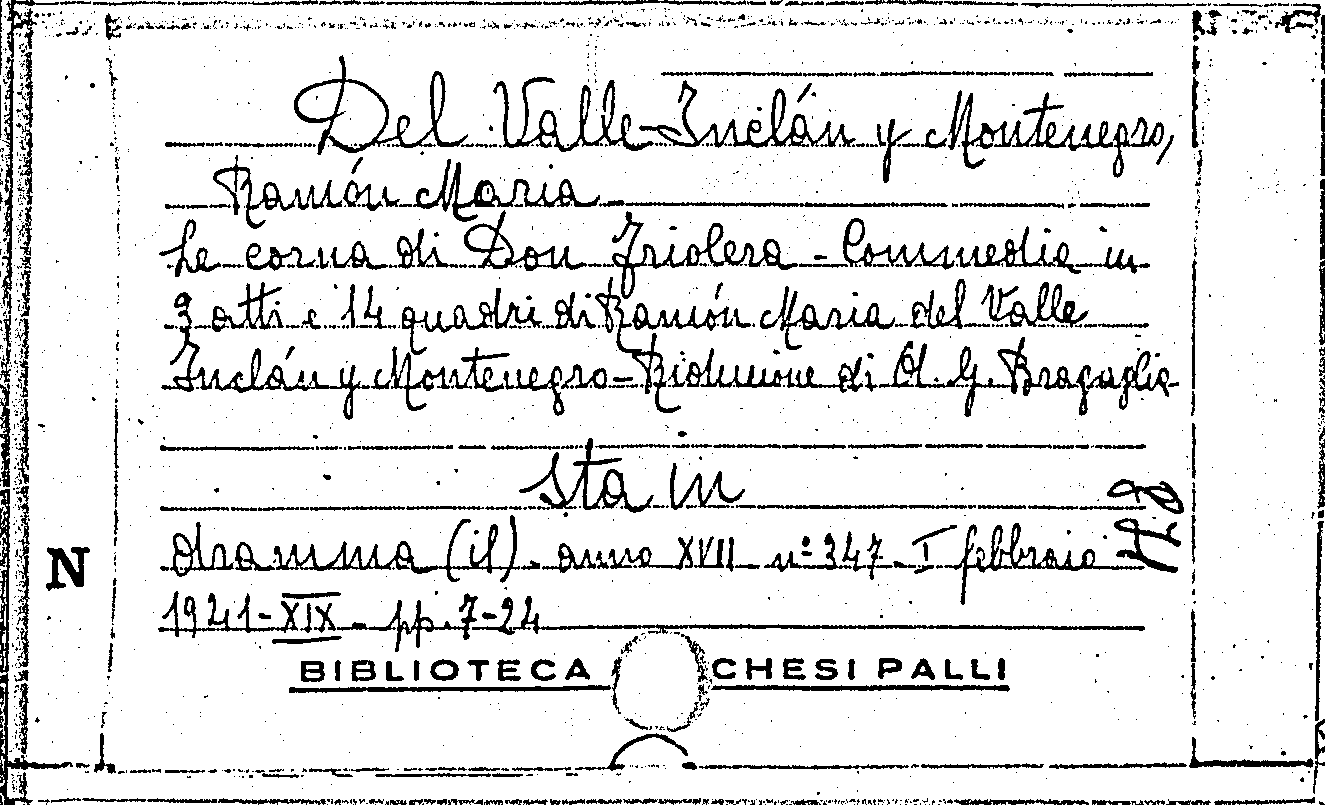 Del Valle-Inclán y Montenegro,
Ramón Maria -
Le corna di Don Friolera - Commedia in
3 atti e 14 quadri di Ramón Maria del Valle
Inclán y Montenegro - Riduzione di A. G. Bragaglia
Sta in
dramma (il) - anno XVII - nº 347 - I febbraio
1941-XIX - pp. 7-24
N
BIBLIOTECA CHESI PALLI